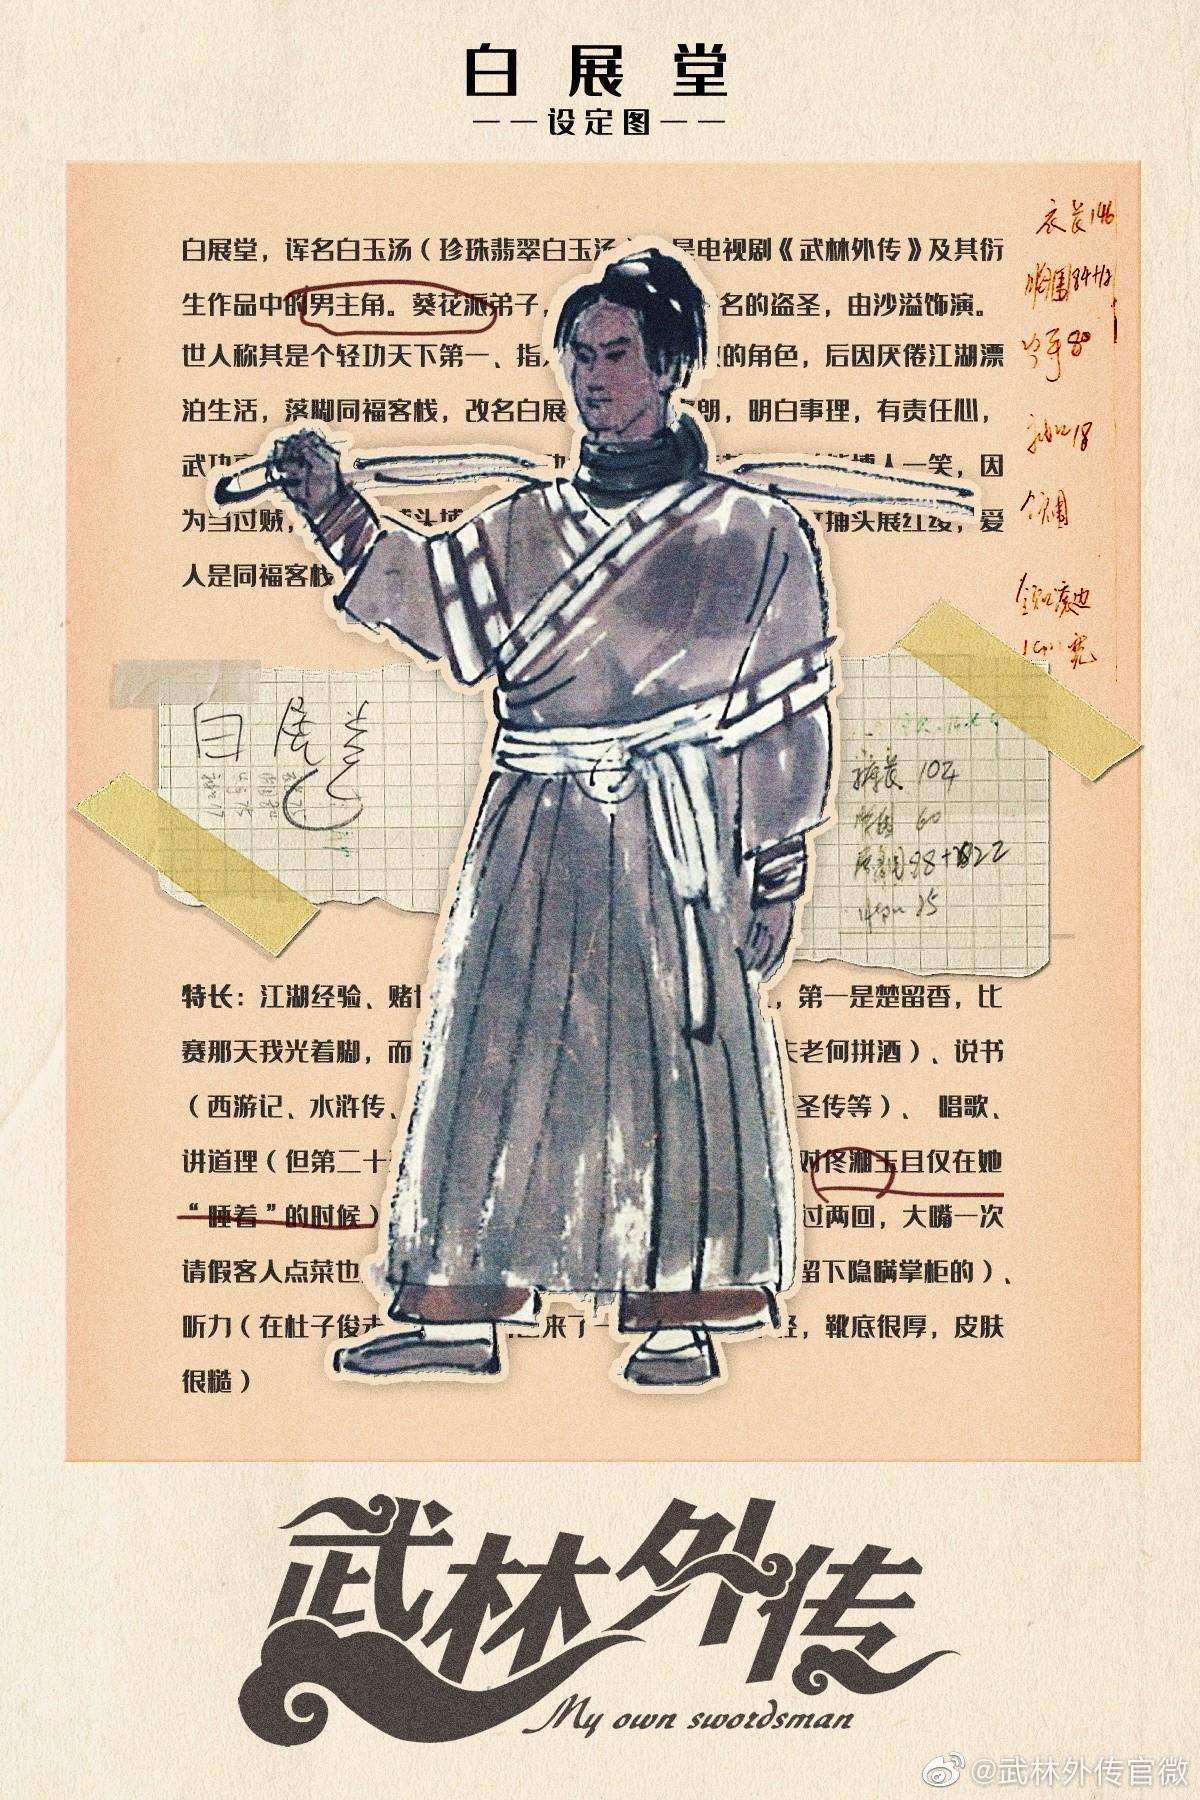 白展堂
——设定图——
白展堂，诨名白玉汤（珍珠翡翠白玉汤）是电视剧《武林外传》及其衍
生作品中的男主角。葵花派弟子， 名的盗圣，由沙溢饰演。
世人称其是个轻功天下第一、指 的角色，后因厌倦江湖漂
泊生活，落脚同福客栈，改名白展 朗，明白事理，有责任心，
武功 博人一笑，因
为当过贼， 抽头展红绫，爱
人是同福客栈
衣长146
80
18
领围
白展堂
裤长 102
60
88+22
25
特长：江湖经验、赌 ，第一是楚留香，比
赛那天我光着脚，而 夫老何拼酒）、说书
（西游记、水浒传、 圣传等）、 唱歌、
讲道理（但第二十 对佟湘玉且仅在她
“睡着”的时候） 过两回，大嘴一次
请假客人点菜也 留下隐瞒掌柜的）、
听力（在杜子俊 来了 轻，靴底很厚，皮肤
很糙）
武林外传
My own swordsman
@武林外传官微